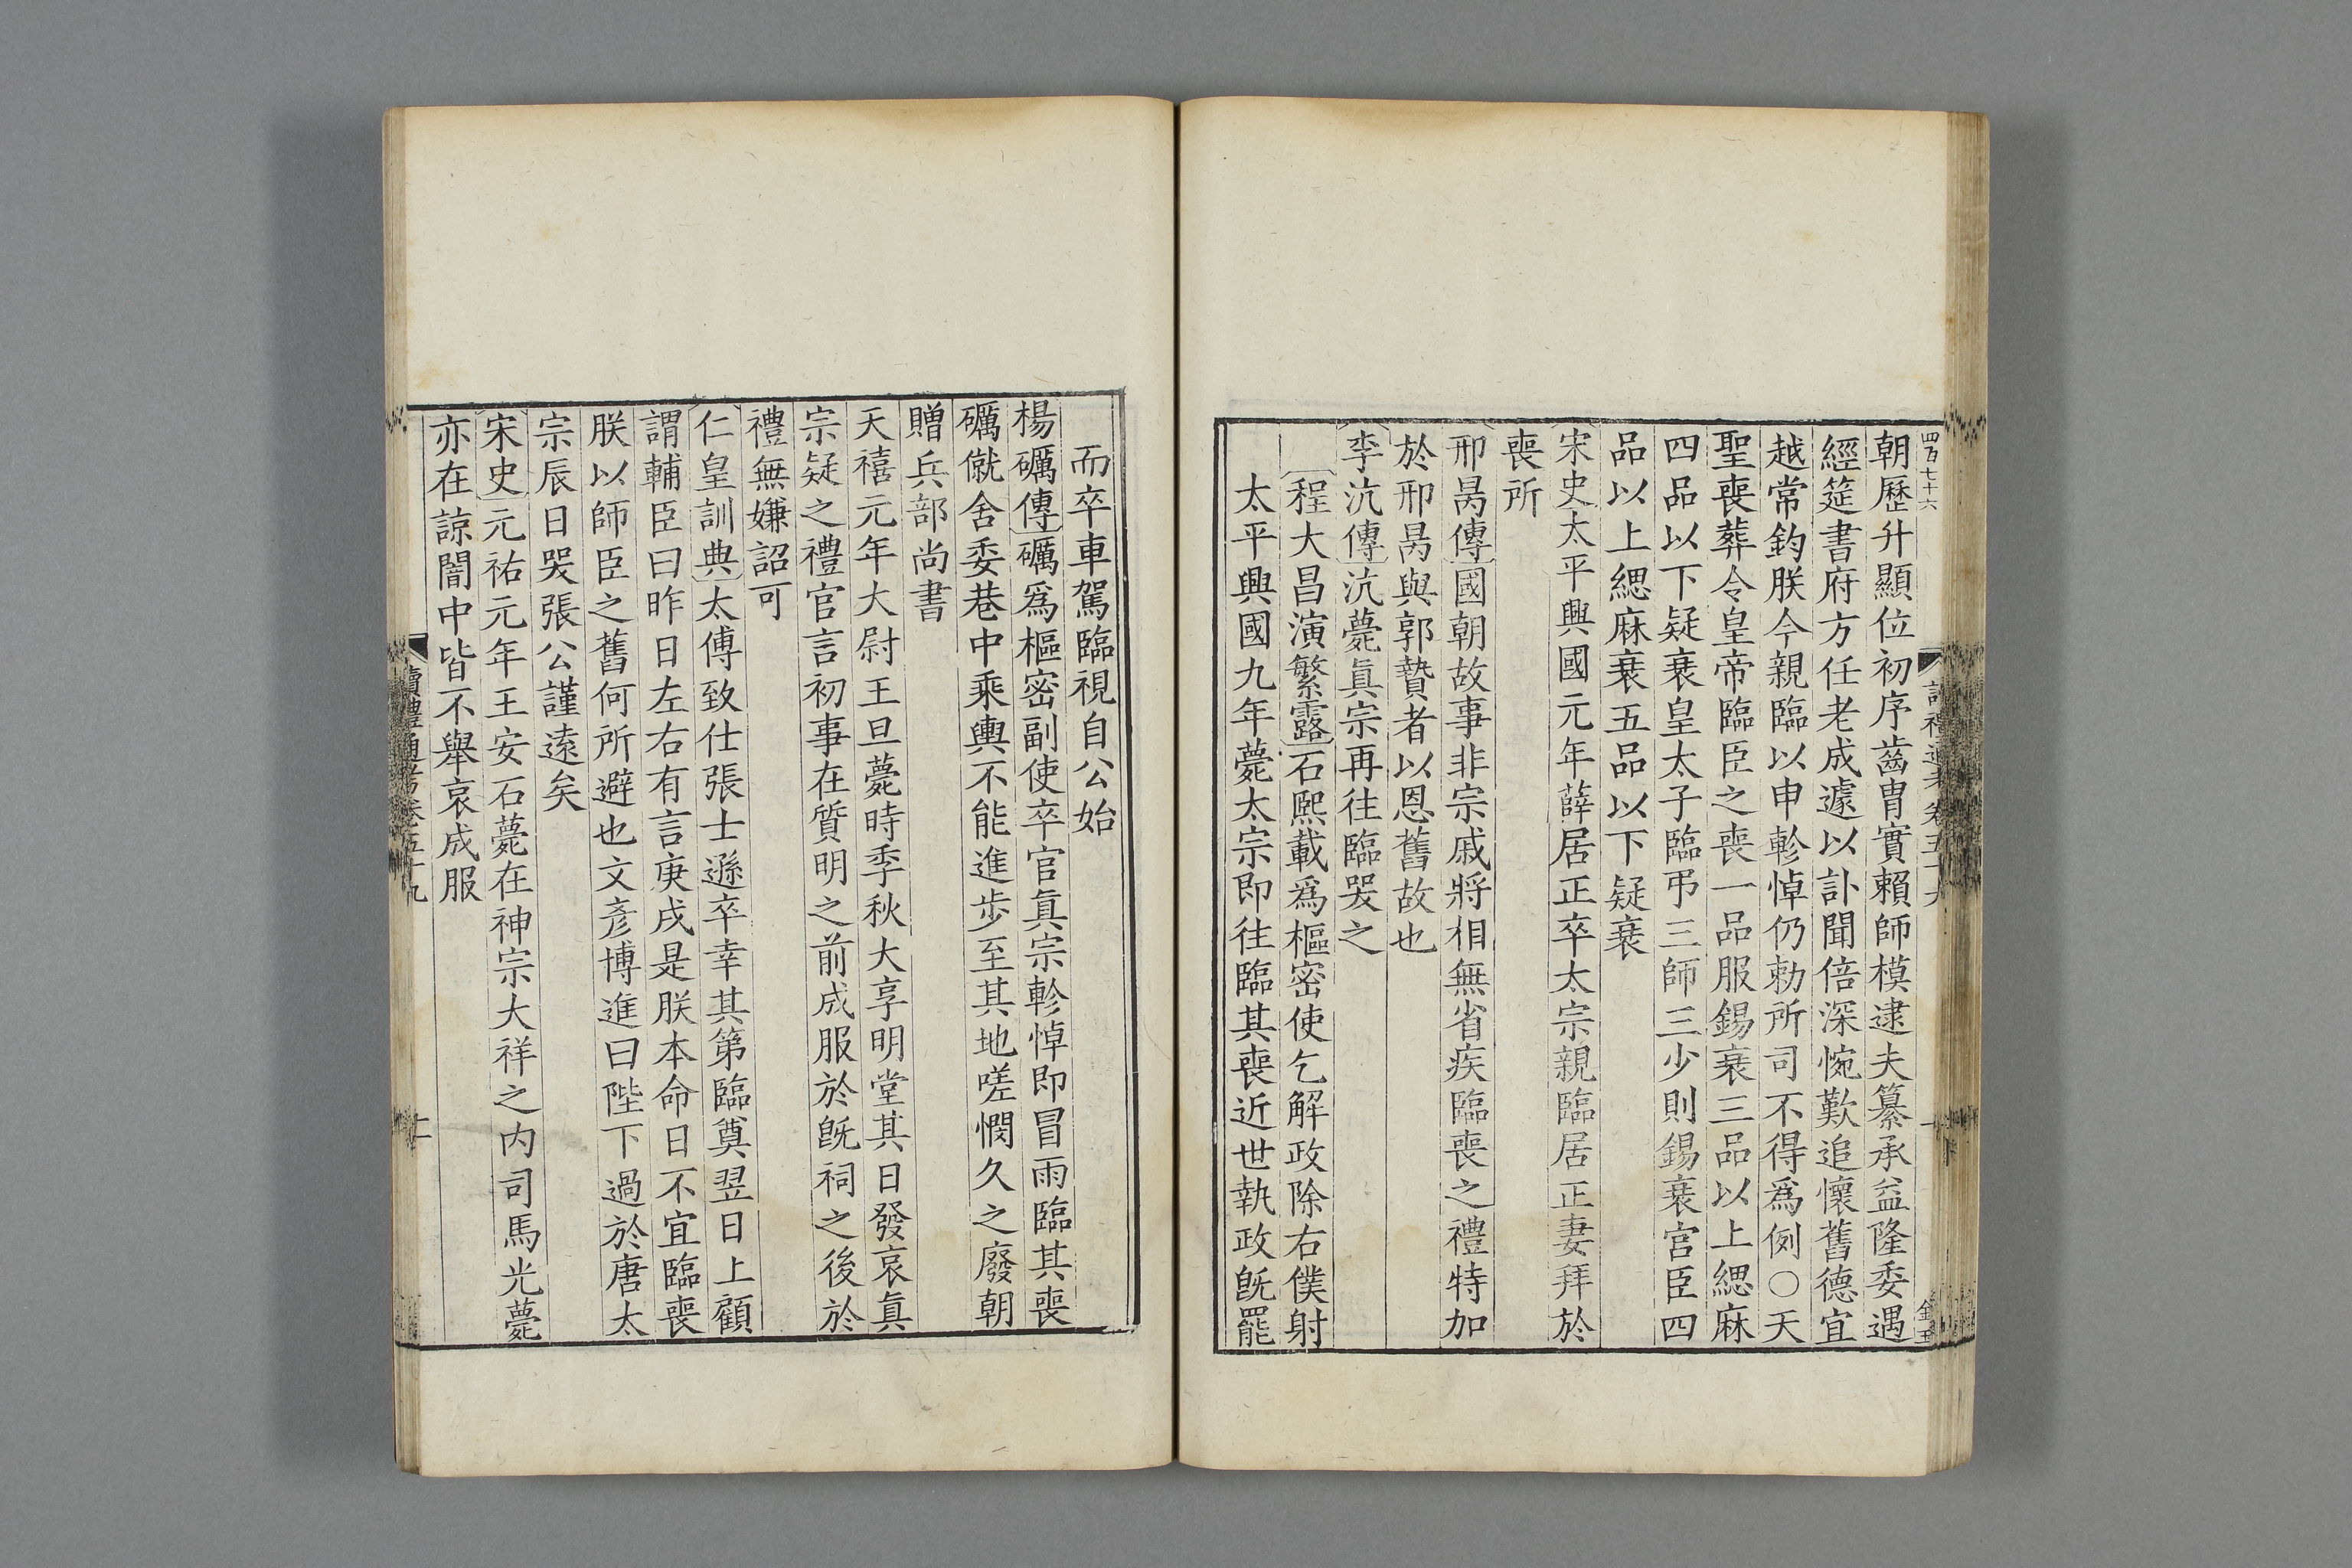 四百七十六
朝歷升顯位初序齒胄實賴師模逮夫纂承益隆委遇
經筵書府方任老成遽以訃聞倍深惋歎追懷舊德宜
越常鈞朕今親臨以申軫悼仍勅所司不得爲例○天
聖喪葬令皇帝臨臣之喪一品服錫衰三品以上緦麻
四品以下疑衰皇太子臨弔三師三少則錫衰宮臣四
品以上緦麻衰五品以下疑衰
宋史太平興國元年薛居正卒太宗親臨居正妻拜於
喪所
邢昺傳國朝故事非宗戚將相無省疾臨喪之禮特加
於邢昺與郭贄者以恩舊故也
李沆傳沆薨眞宗再往臨哭之
程大昌演繁露石熙載爲樞密使乞解政除右僕射
太平興國九年薨太宗即往臨其喪近世執政旣罷
而卒車駕臨視自公始
楊礪傳礪爲樞密副使卒官眞宗軫悼即冒雨臨其喪
礪僦舍委巷中乘輿不能進步至其地嗟憫久之廢朝
贈兵部尚書
天禧元年大尉王旦薨時季秋大享明堂其日發哀眞
宗疑之禮官言初事在質明之前成服於旣祠之後於
禮無嫌詔可
仁皇訓典太傅致仕張士遜卒幸其第臨奠翌日上顧
謂輔臣曰昨日左右有言庚戌是朕本命日不宜臨喪
朕以師臣之舊何所避也文彥博進曰陛下過於唐太
宗辰日哭張公謹遠矣
宋史元祐元年王安石薨在神宗大祥之内司馬光薨
亦在諒闇中皆不舉哀成服
讀禮通考卷五十九